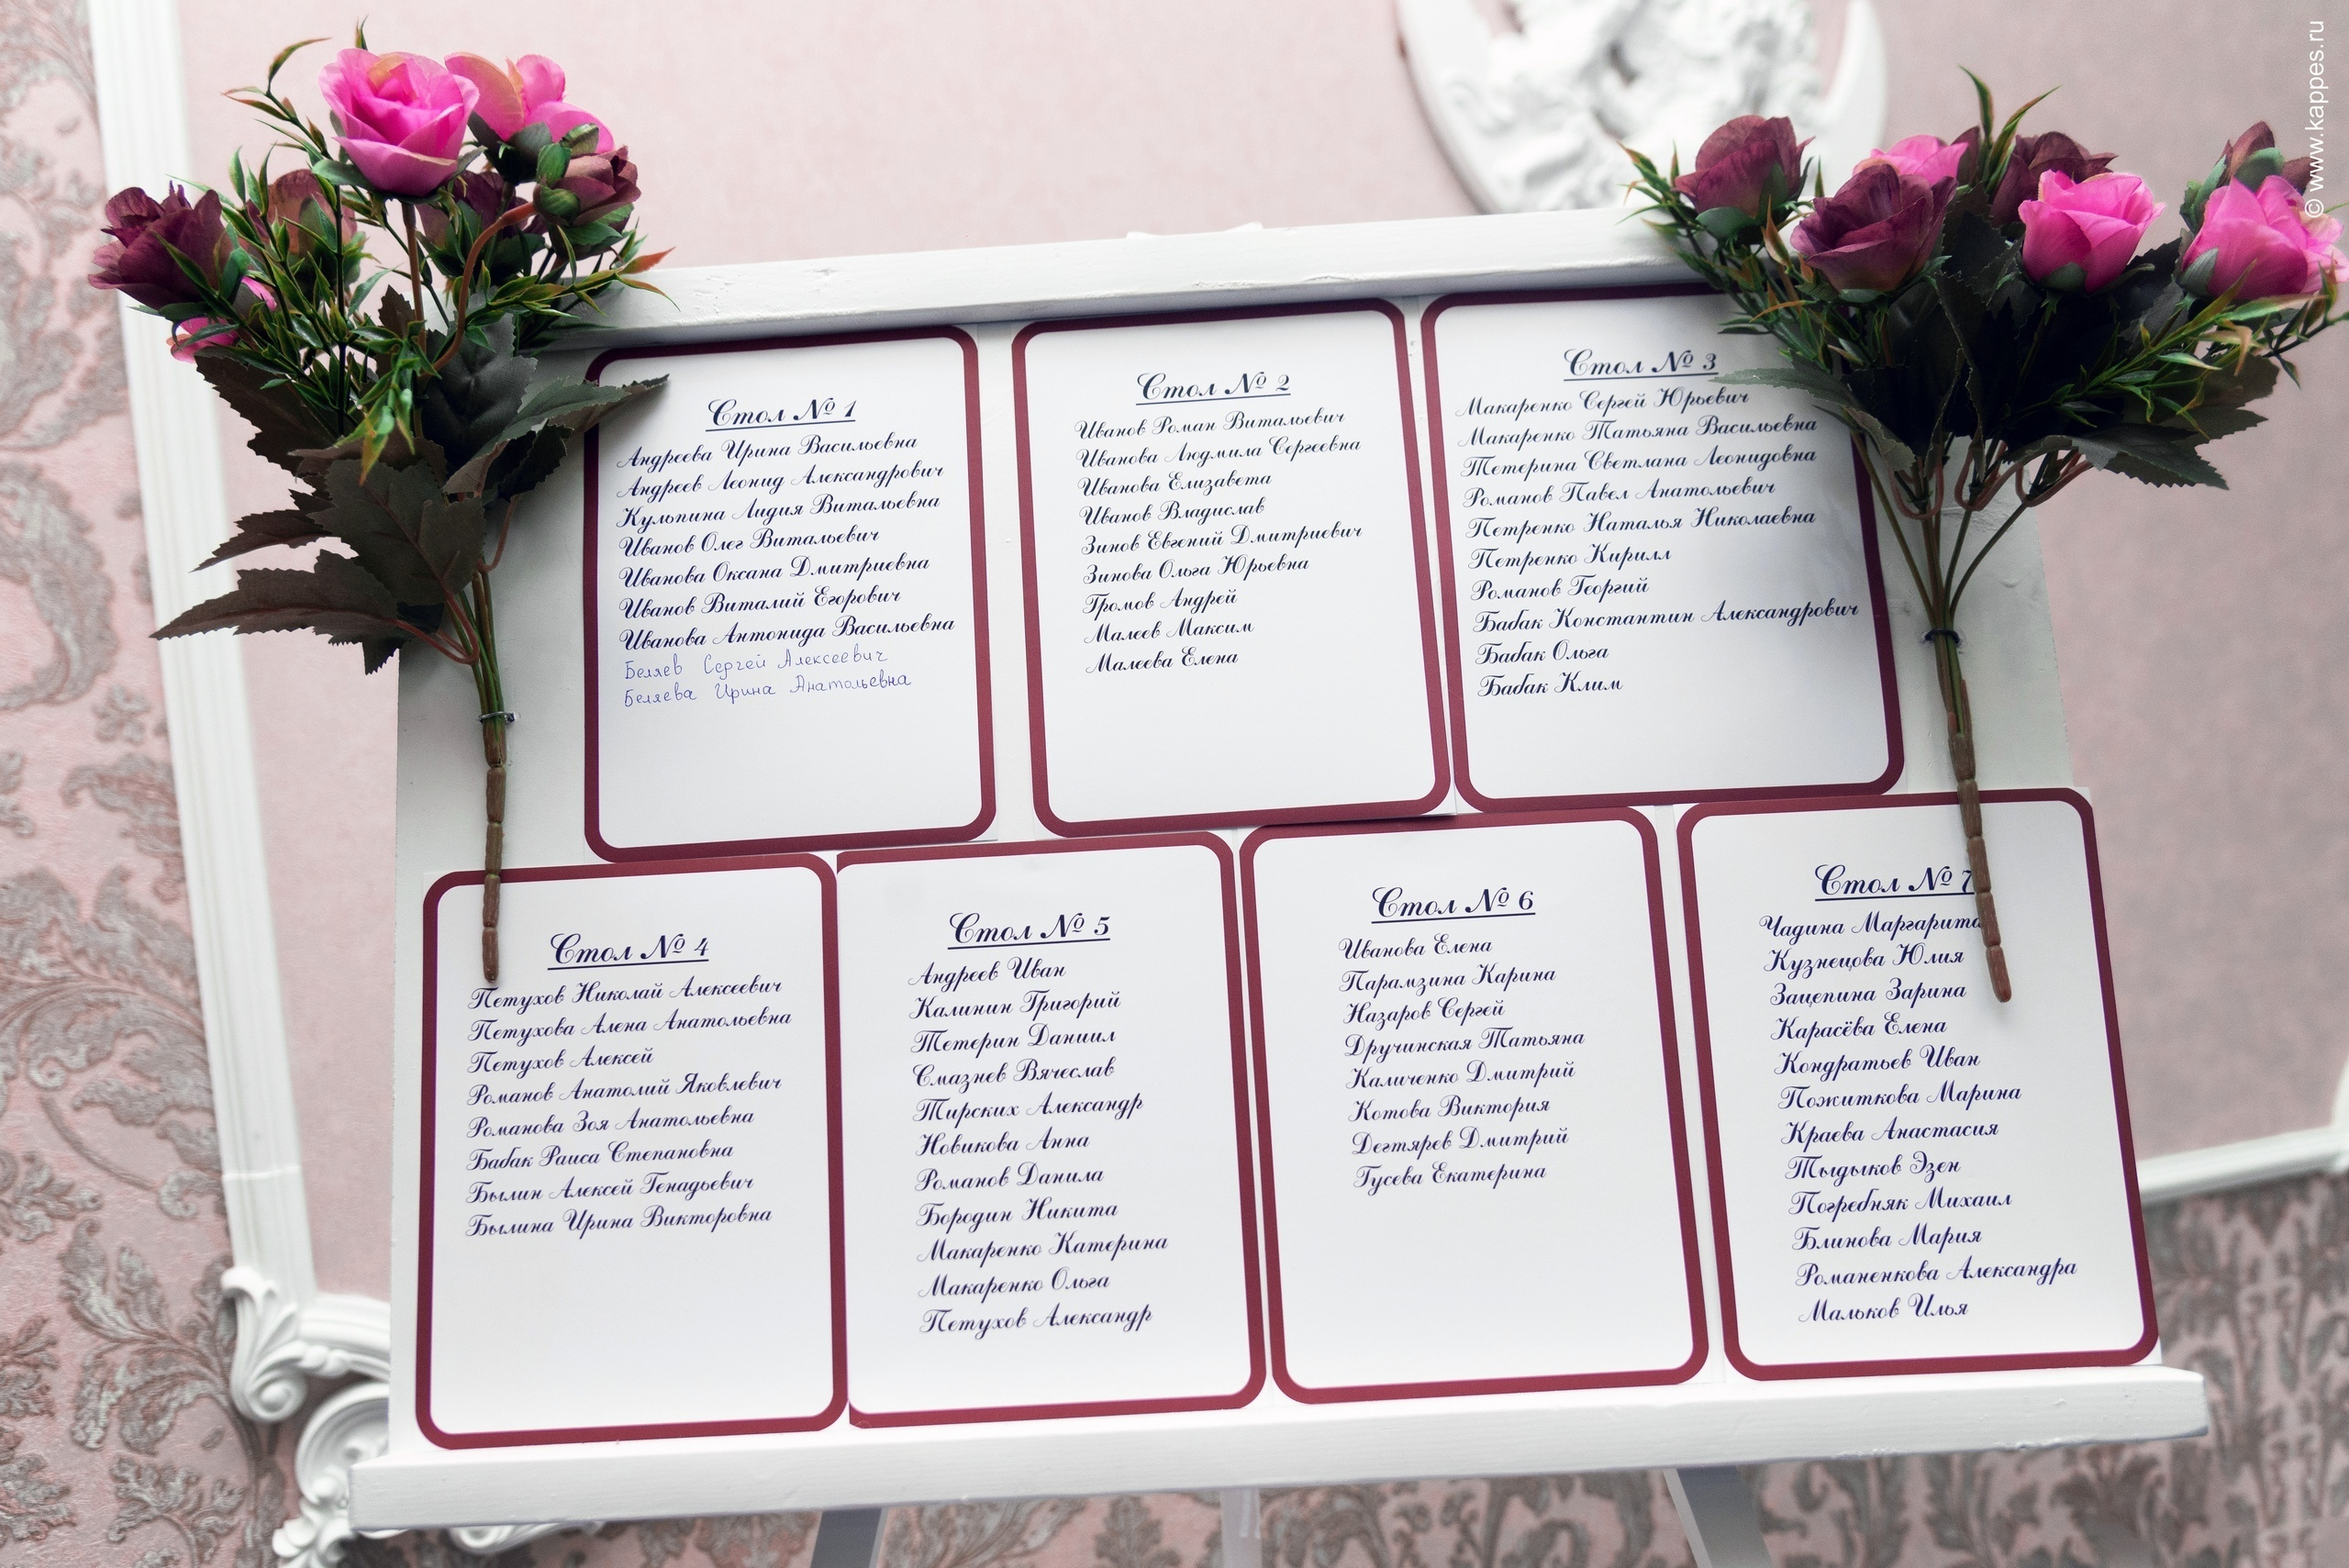 © www.kappes.ru
Стол № 1
Андреева Ирина Васильевна
Андреев Леонид Александрович
Кульпина Лидия Витальевна
Иванов Олег Витальевич
Иванова Оксана Дмитриевна
Иванов Виталий Егорович
Иванова Антонида Васильевна
Беляев Сергей Алексеевич
Беляева Ирина Анатольевна
Стол № 2
Иванов Роман Витальевич
Иванова Людмила Сергеевна
Иванова Елизавета
Иванов Владислав
Зинов Евгений Дмитриевич
Зинова Ольга Юрьевна
Громов Андрей
Малеев Максим
Малеева Елена
Стол № 3
Макаренко Сергей Юрьевич
Макаренко Татьяна Васильевна
Тетерина Светлана Леонидовна
Романов Павел Анатольевич
Петренко Наталья Николаевна
Петренко Кирилл
Романов Георгий
Бабак Константин Александрович
Бабак Ольга
Бабак Клим
Стол № 4
Петухов Николай Алексеевич
Петухова Алена Анатольевна
Петухов Алексей
Романов Анатолий Яковлевич
Романова Зоя Анатольевна
Бабак Раиса Степановна
Былин Алексей Генадьевич
Былина Ирина Викторовна
Стол № 5
Андреев Иван
Калинин Григорий
Тетерин Даниил
Смазнев Вячеслав
Тирских Александр
Новикова Анна
Романов Данила
Бородин Никита
Макаренко Катерина
Макаренко Ольга
Петухов Александр
Стол № 6
Иванова Елена
Парамзина Карина
Назаров Сергей
Дручинская Татьяна
Каличенко Дмитрий
Котова Виктория
Дегтярев Дмитрий
Гусева Екатерина
Стол № 7
Чадина Маргарита
Кузнецова Юлия
Зацепина Зарина
Карасёва Елена
Кондратьев Иван
Пожиткова Марина
Краева Анастасия
Тыдыков Эзен
Погребняк Михаил
Блинова Мария
Романенкова Александра
Мальков Илья